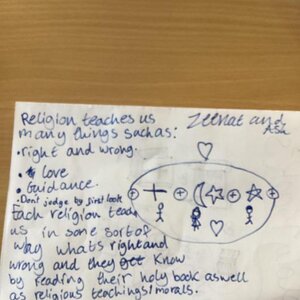 Religion teaches us
many things such as:
Zeenat and
Ash
• right and wrong.
• Love
• Guidance.
• Don't judge by first look
Each religion teach
us in some sort of
way whats right and
wrong and they get know
by reading their holy book aswell
as religious teachings/morals.